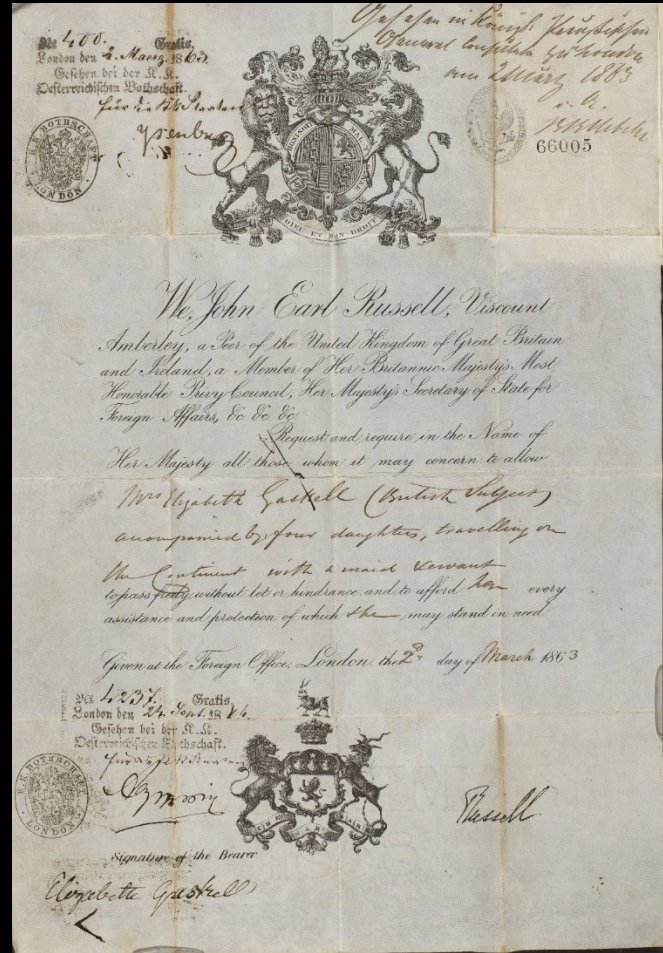 No 400. Gratis.
London den 2. Maerz 1863.
Gesehen bei der K. K.
Oesterreichischen Bothschaft.
für die kk Staaten
K. K. BOTHSCHAFT
LONDON
Gesehen im Königl: Preußischen
General Consulate zu London
am 2 März 1863
66005
HONI SOIT QUI MAL Y PENSE
DIEU ET MON DROIT
We, John Earl Russell, Viscount
Amberley, a Peer of the United Kingdom of Great Britain
and Ireland, a Member of Her Britannic Majesty's Most
Honorable Privy Council, Her Majesty's Secretary of State for
Foreign Affairs, &c. &c. &c.
Request and require in the Name of
Her Majesty all those whom it may concern to allow
Mrs Elizabeth Gaskell (British Subject)
accompanied by four daughters, travelling on
the Continent with a maid servant
to pass freely without let or hindrance and to afford her every
assistance and protection of which she may stand in need.
Given at the Foreign Office, London, the 2d day of March 1863
No 4237. Gratis.
London den 24 Sept. 1864.
Gesehen bei der K. K.
Oesterreichischen Bothschaft.
K. K. BOTHSCHAFT
LONDON
CHE SARA SARA
Russell
Signature of the Bearer
Elizabeth Gaskell